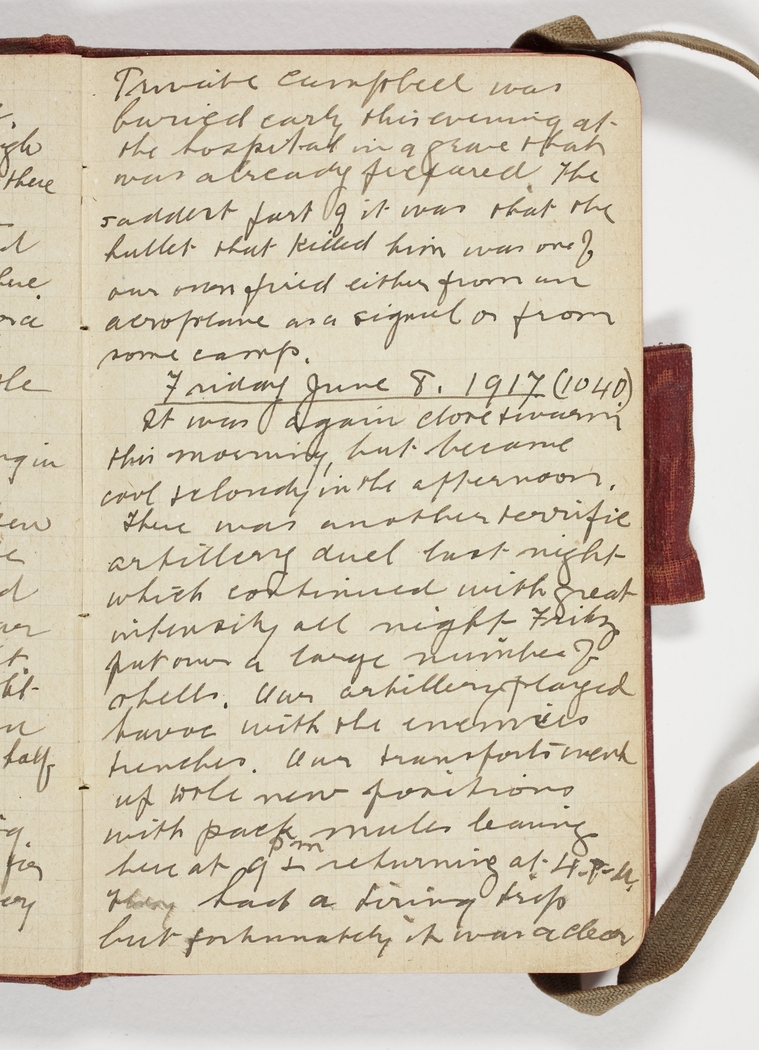 Private Campbell was
buried early this evening at
the hospital in a grave that
was already prepared The
saddest part of it was that the
bullet that killed him was one of
our own fired either from an
aeroplane as a signal or from
some camp.
Friday June 8. 1917 (1040)
It was again close & warm
this morning, but became
cool & cloudy in the afternoon.
There was another terrific
artillery duel last night
which continued with great
intensity all night Fritz
put over a large number of
shells. Our artillery played
havoc with the enemies
trenches. Our transports went
up to the new positions
with pack mules leaving
here at 9 pm & returning at 4.
They had a tiring trip
but fortunately it was a clear
there
half